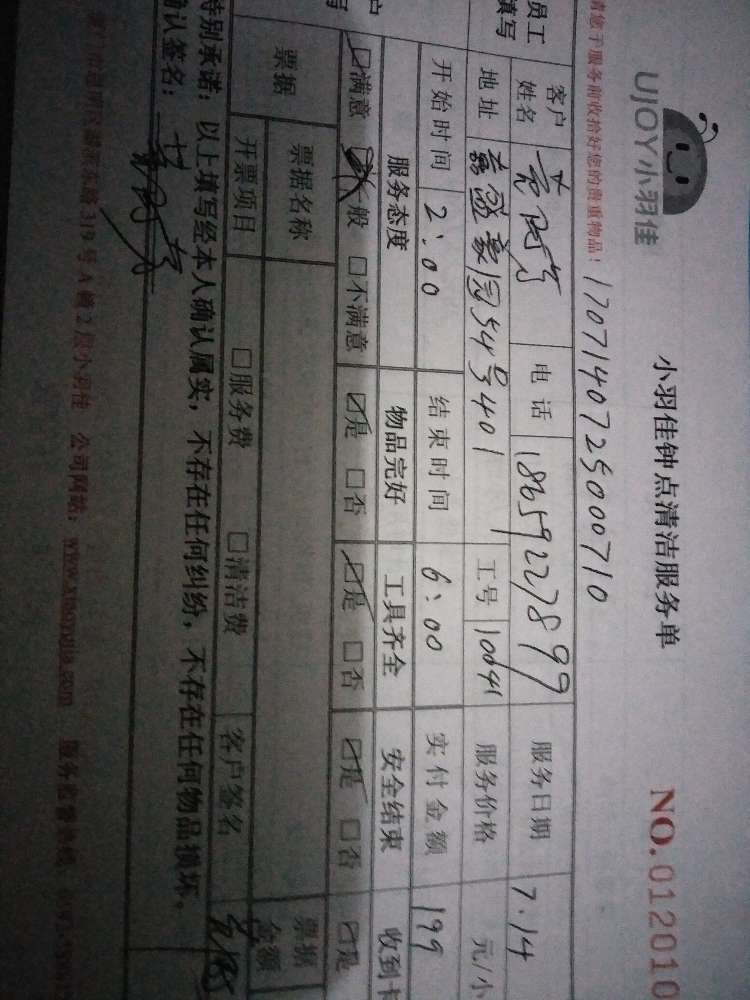 UJOY小羽佳
小羽佳钟点清洁服务单
NO.012010
请您于服务前收拾好您的贵重物品！
1707140725000710
员工
填写
客户
姓名
电话
18659227899
服务日期
7.14
地址
嘉盛豪园54号401
工号
10641
服务价格
元/小
开始时间
2:00
结束时间
6:00
实付金额
199
服务态度
物品完好
工具齐全
安全结束
收到卡
满意 一般 不满意
是 否
是 否
是 否
是
票据
票据名称
票据
金额
开票项目
服务费 清洁费
客户签名
特别承诺：以上填写经本人确认属实，不存在任何纠纷，不存在任何物品损坏。
确认签名：
319号A栋2层小羽佳 公司网站：www.xiaoyujia.com 服务监督热线：